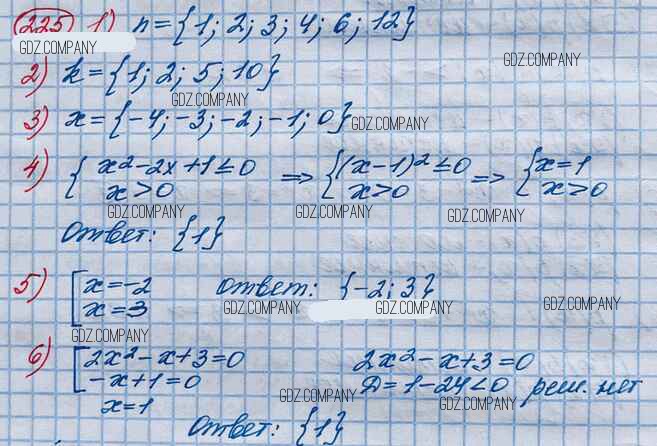 225 1) n = {1; 2; 3; 4; 6; 12}
GDZ.COMPANY
GDZ.COMPANY
2) k = {1; 2; 5; 10}
GDZ.COMPANY
3) x = {-4; -3; -2; -1; 0}
GDZ.COMPANY
4) { x² - 2x + 1 ≤ 0 => { (x - 1)² ≤ 0 => { x = 1
x > 0 x > 0 x > 0
GDZ.COMPANY GDZ.COMPANY GDZ.COMPANY
Ответ: {1}
5) [ x = -2 Ответ: {-2; 3}
x = 3
GDZ.COMPANY GDZ.COMPANY GDZ.COMPANY
GDZ.COMPANY
6) [ 2x² - x + 3 = 0 2x² - x + 3 = 0
-x + 1 = 0 D = 1 - 24 < 0 реш. нет
GDZ.COMPANY GDZ.COMPANY
x = 1
Ответ: {1}